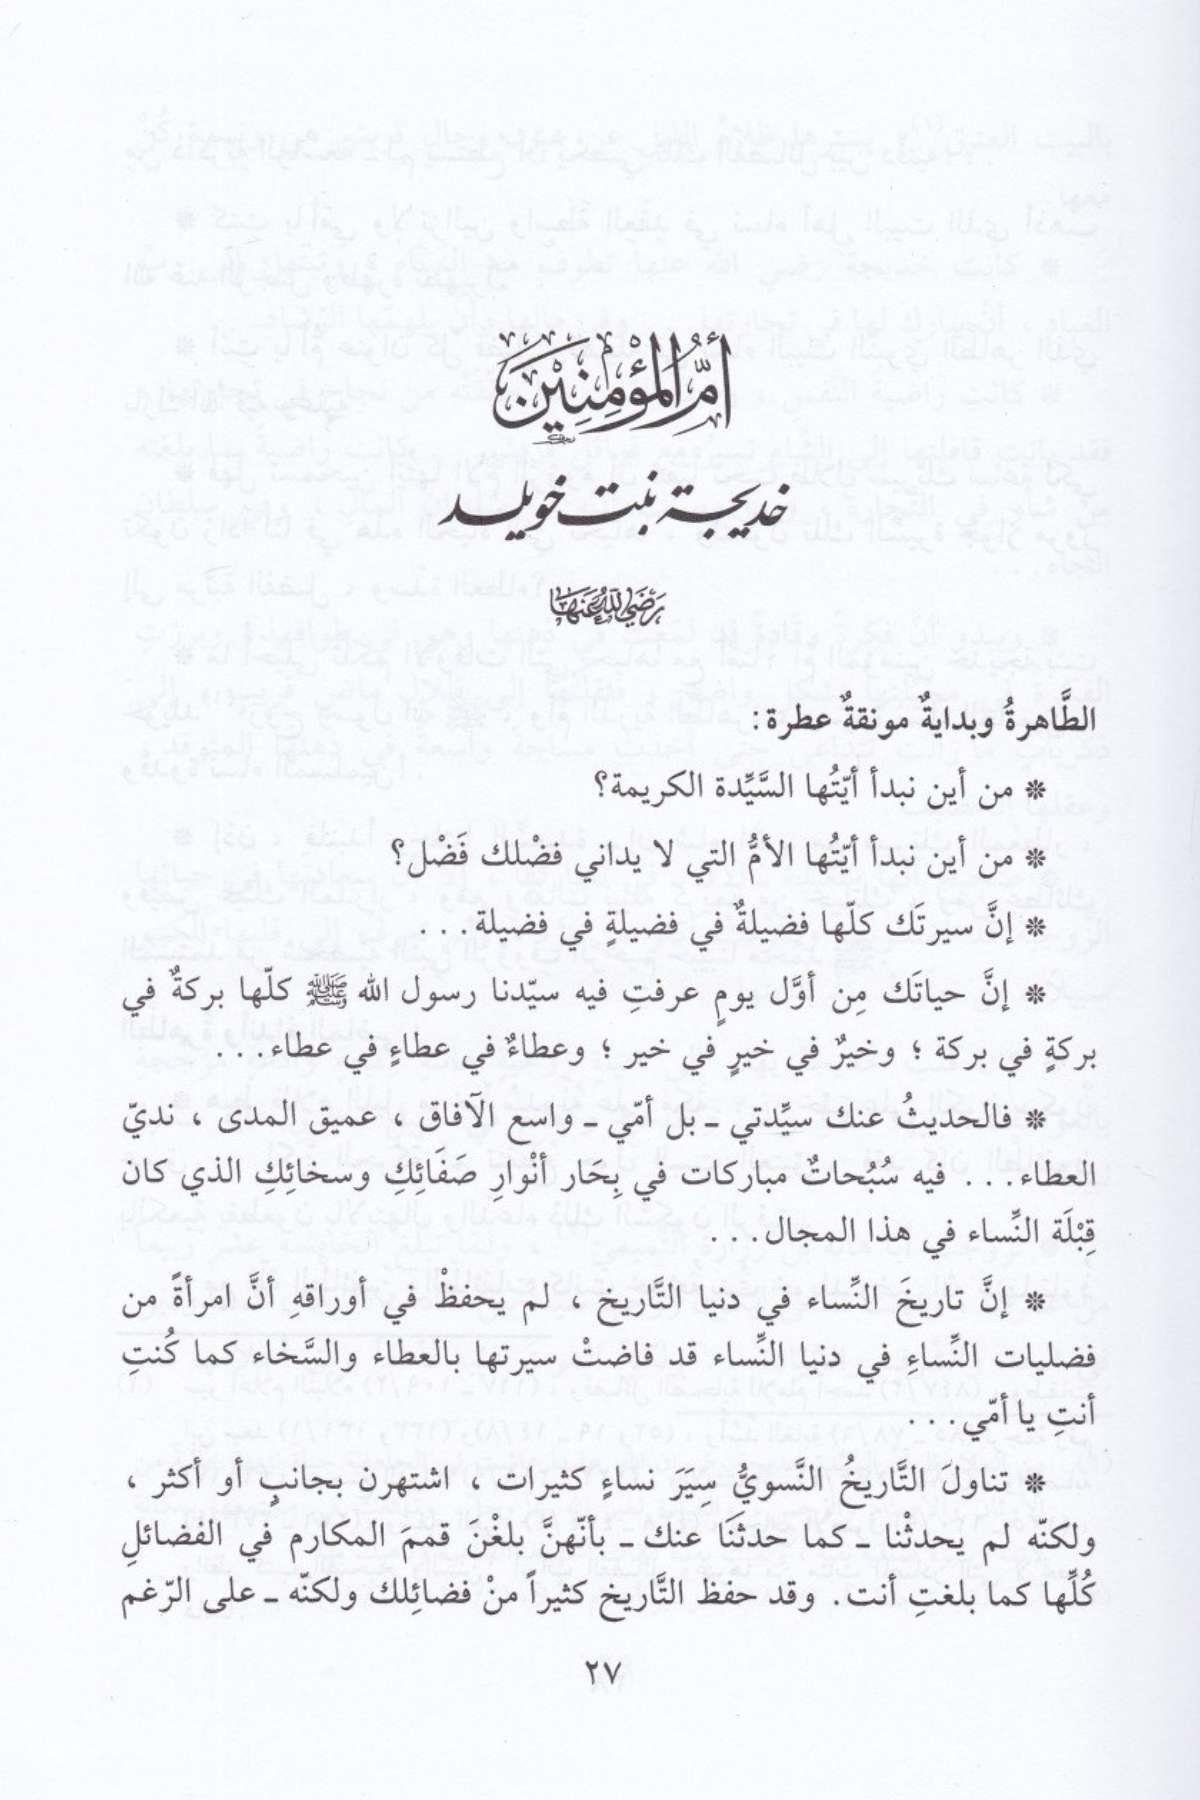 أمُّ المُؤْمِنِيْنَ
خديجة بنت خويلد
رَضِيَ اللهُ عَنْهَا
الطَّاهرةُ وبدايةٌ مونقةٌ عطرة:
❊ من أين نبدأ أيّتُها السَّيِّدة الكريمة؟
❊ من أين نبدأ أيّتُها الأمُّ التي لا يداني فضْلك فَضْل؟
❊ إنَّ سيرتَك كلّها فضيلةٌ في فضيلةٍ في فضيلة...
❊ إنَّ حياتَك مِن أوَّل يومٍ عرفتِ فيه سيّدنا رسول الله ﷺ كلّها بركةٌ في
بركةٍ في بركة ؛ وخيرٌ في خيرٍ في خير ؛ وعطاءٌ في عطاءٍ في عطاء...
❊ فالحديثُ عنك سيِّدتي ـ بل أمّي ـ واسع الآفاق ، عميق المدى ، نديّ
العطاء... فيه سُبُحاتٌ مباركات في بِحَار أنْوارِ صَفَائِكِ وسخائِكِ الذي كان
قِبْلَة النِّساء في هذا المجال...
❊ إنَّ تاريخَ النِّساء في دنيا التَّاريخ ، لم يحفظْ في أوراقهِ أنَّ امرأةً من
فضليات النِّساءِ في دنيا النِّساء قد فاضتْ سيرتها بالعطاء والسَّخاء كما كُنتِ
أنتِ يا أمّي...
❊ تناولَ التَّاريخُ النَّسويُّ سِيَرَ نساءٍ كثيرات ، اشتهرن بجانبٍ أو أكثر ،
ولكنّه لم يحدثْنا ـ كما حدثنَا عنك ـ بأنّهنَّ بلغْنَ قممَ المكارم في الفضائلِ
كُلِّها كما بلغتِ أنت. وقد حفظ التَّاريخ كثيراً منْ فضائِلك ولكنّه ـ على الرّغم
٢٧